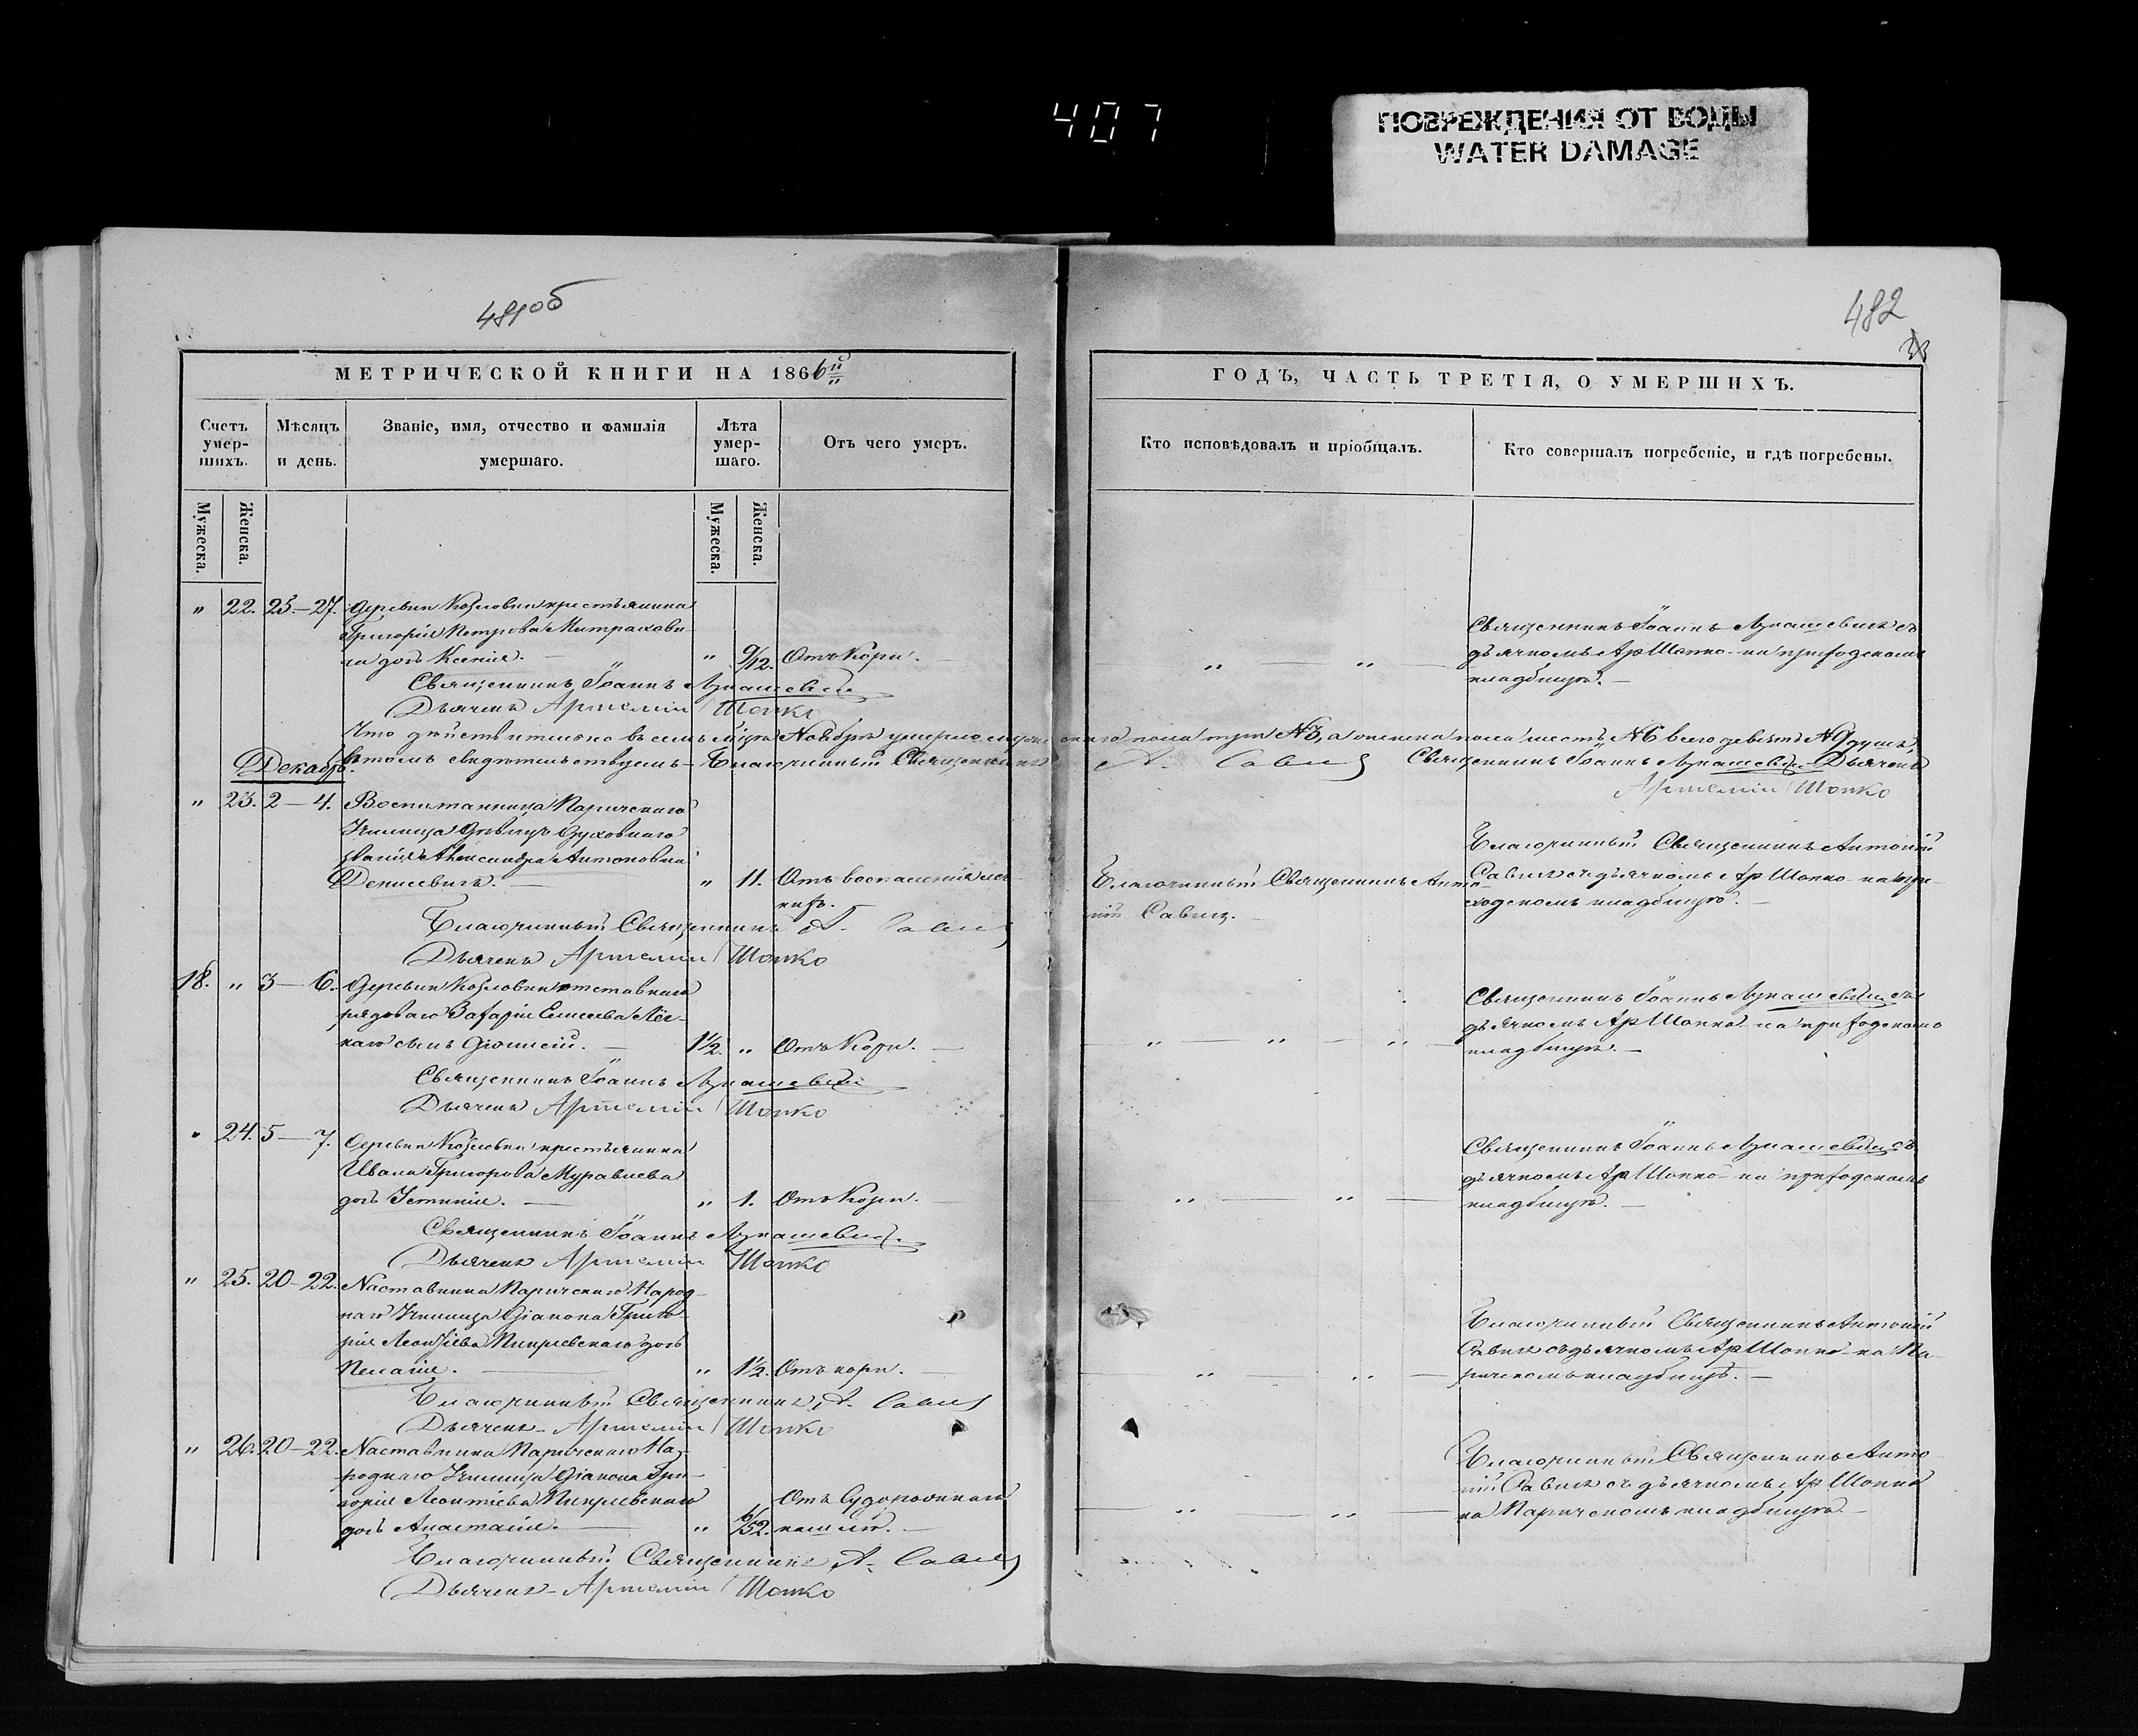 407
ПОВРЕЖДЕНИЯ ОТ ВОДЫ
WATER DAMAGE
481об
482
МЕТРИЧЕСКОЙ КНИГИ НА 1866й
Счетъ умер- шихъ.
Мѣсяцъ и день.
Званіе, имя, отчество и фамилія умершаго.
Лѣта умер- шаго.
Отъ чего умеръ.
Мужеска.
Женска.
Мужеска.
Женска.
" 22. 25.—27. Деревни Козловки крестьянина
Григорія Петрова Митракови-
ча дочь Ксенія. — " 9/12. Отъ Кори. —
Священникъ Іоаннъ Лукашевичъ
Дьячекъ Артемій Шопко
Что дѣйствительно въ семъ м-цѣ Ноябрѣ умерло мужескаго пола три №3, а женска пола шесть №6 всего девять №9 душъ.
Декабрь.
въ томъ свидѣтельствуемъ – Благочинный Священникъ А. Савичъ Священникъ Іоаннъ Лукашевичъ Дьячекъ
Артемій Шопко
" 23. 2 — 4. Воспитанница Паричскаго
Училища дѣвицъ духовнаго
званія Александра Антоновна
Денисевичъ. — " 11. Отъ воспаленія лег-
кихъ.
Благочинный Священникъ А. Савичъ
Дьячекъ Артемій Шопко
18. " 3 — 6. Деревни Козловки отставнаго
рядоваго Захарія Елисеева
сынъ Діонисій. — 1 1/2. " Отъ Кори. —
Священникъ Іоаннъ Лукашевичъ
Дьячекъ Артемій Шопко
" 24. 5 — 7. Деревни Козловки крестьянина
Ивана Григорова Муравьева
дочь Устинія. — " 1. Отъ Кори. —
Священникъ Іоаннъ Лукашевичъ.
Дьячекъ Артемій Шопко
" 25. 20–22. Наставника Паричскаго Народ-
наго Училища Діакона Григо-
рія Леонтіева дочь
Пелагія. — " 1 1/2. Отъ кори. —
Благочинный Священникъ А. Савичъ
Дьячекъ – Артемій Шопко
" 26. 20–22. Наставника Паричскаго На-
роднаго Училища Діакона Гри-
горія Леонтіева Отъ Судорожнаго
дочь Анастасія. — " 6/52. кашля. —
Благочинный Священникъ А. Савичъ
Дьячекъ – Артемій Шопко
ГОДЪ, ЧАСТЬ ТРЕТІЯ, О УМЕРШИХЪ.
Кто исповѣдовалъ и пріобщалъ.
Кто совершалъ погребеніе, и гдѣ погребены.
Священникъ Іоаннъ Лукашевичъ съ
дьячкомъ Ар Шопко на приходскомъ
" — " — кладбищѣ. —
Благочинный Священникъ Антоній
Благочинный Священникъ Анто- Савичъ съ дьячкомъ Ар Шопко на при-
ній Савичъ. ходскомъ кладбищѣ. —
Священникъ Іоаннъ Лукашевичъ съ
дьячкомъ Ар Шопко на приходскомъ
" — " — " — кладбищѣ. —
Священникъ Іоаннъ Лукашевичъ съ
дьячкомъ Ар Шопко на приходскомъ
" — " — кладбищѣ. —
Благочинный Священникъ Антоній
Савичъ съ дьячкомъ Ар Шопко на Па-
" — " — ричскомъ кладбищѣ. —
Благочинный Священникъ Анто
ній Савичъ съ дьячкомъ Ар Шопко
" — " — на Паричскомъ кладбищѣ. —